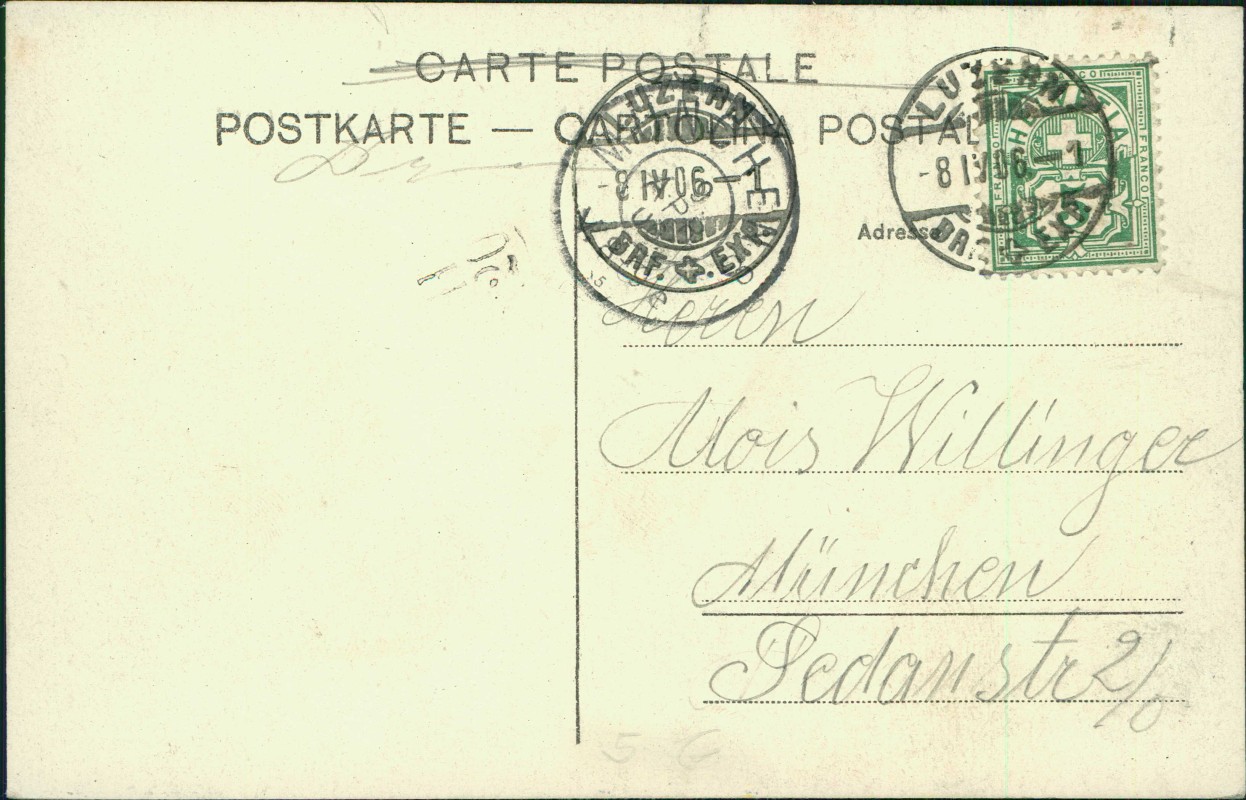 CARTE POSTALE
POSTKARTE — CARTOLINA POSTALE
LUZERN
-8 IV 06
BRF. EXP.
LUZERN
-8 IV 06 — 1
BRF. EXP.
FRANCO
5
Adresse
Herrn
Alois Willinger
München
Sedanstr 2/0
5 6